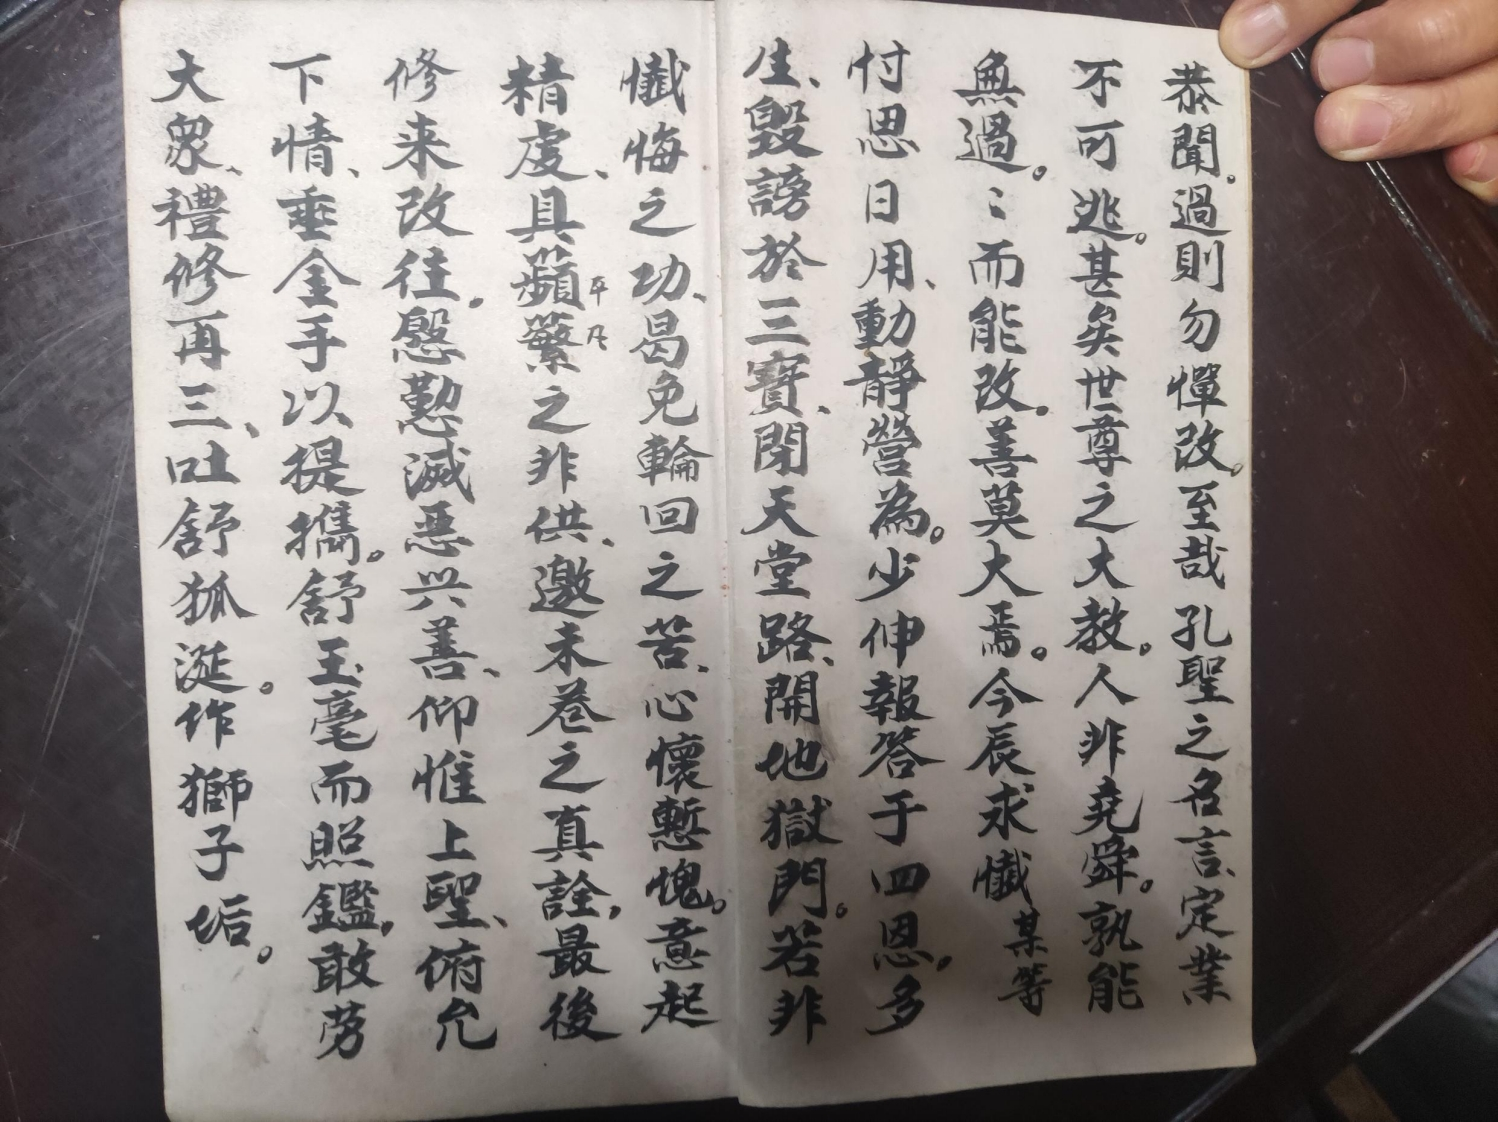 恭聞。過則勿憚改。至哉孔聖之名言、定業
不可逃。甚矣世尊之大教。人非堯舜。孰能
無過。〻而能改。善莫大焉。今辰求懺某等
忖思日用、動靜營為。少伸報答于四恩，多
生、毀謗於三寶、閉天堂路、開地獄門。若非
懺悔之功、曷免輪回之苦、心懷慙愧。意起
精虔、具蘋蘩之非供、邀末卷之真詮，最後
平凡
修来改往，慇懃滅惡兴善、仰惟上聖、俯允
下情、垂金手以提攜。舒玉毫而照鑑，敢劳
大眾、禮修再三、吐舒狐涎。作獅子㘽。